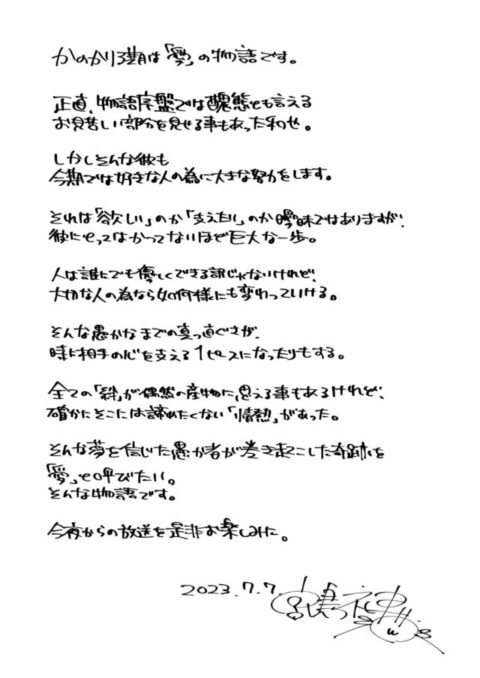 かのかり3期は「愛」の物語です。
正直、物語序盤では醜態とも言える
お見苦しい部分を見せる事もあった和也。
しかしそんな彼も
今期では好きな人の為に大きな努力をします。
それは「欲しい」のか「支えたい」のか曖昧ではありますが、
彼にとってはかつてないほど巨大な一歩。
人は誰にでも優しくできる訳じゃないけれど、
大切な人の為なら如何様にも変わっていける。
そんな愚かなまでの真っ直ぐさが、
時に相手の心を支える1ピースになったりもする。
全ての「絆」が偶然の産物に思える事もあるけれど、
確かにそこには諦めたくない「情熱」があった。
そんな夢を信じた愚か者が巻き起こした奇跡を
「愛」と呼びたい。
そんな物語です。
今夜からの放送を是非お楽しみに。
2023.7.7.